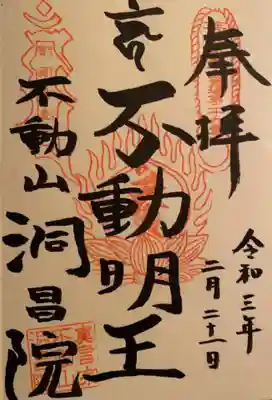 奉拝
令和三年
二月二十一日
不動明王
不動山
洞昌院